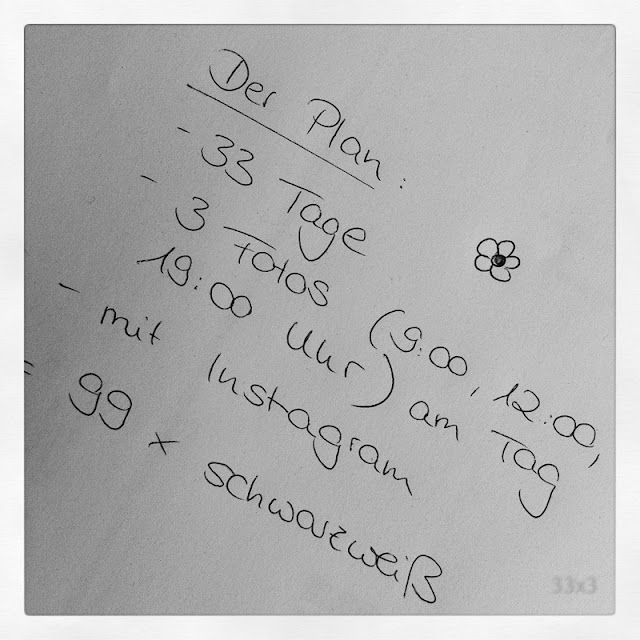 Der Plan:
- 33 Tage
- 3 Fotos (9:00, 12:00,
19:00 Uhr) am Tag
- mit Instagram
= 99 x schwarzweiß
33x3